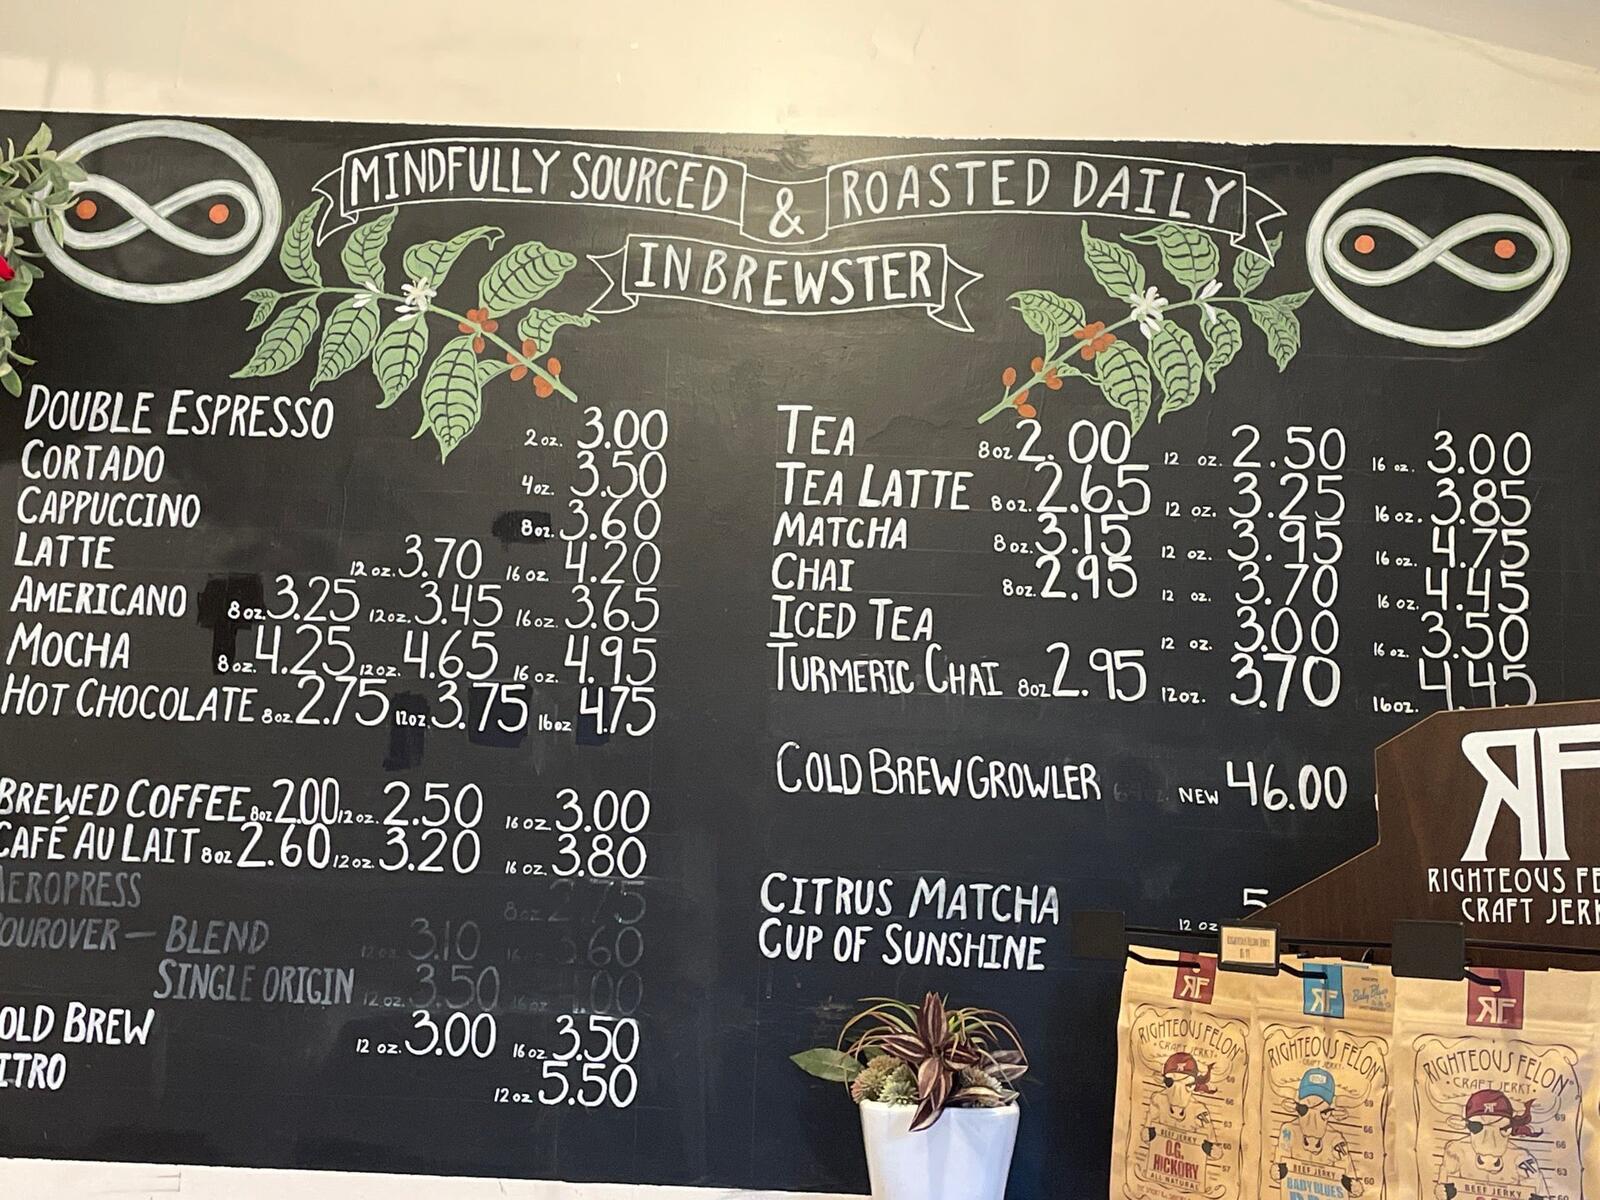 MINDFULLY SOURCED & ROASTED DAILY
IN BREWSTER
DOUBLE ESPRESSO 2 oz. 3.00
CORTADO 4oz. 3.50
CAPPUCCINO 8oz. 3.60
LATTE 12 oz. 3.70 16 oz. 4.20
AMERICANO 8oz. 3.25 12oz. 3.45 16 oz. 3.65
MOCHA 8oz. 4.25 12oz. 4.65 16 oz. 4.95
HOT CHOCOLATE 8oz 2.75 12oz. 3.75 16oz 4.75
BREWED COFFEE 8oz 2.00 12oz. 2.50 16 oz 3.00
CAFÉ AU LAIT 8oz 2.60 12oz. 3.20 16 oz. 3.80
AEROPRESS 8oz 2.75
POUROVER — BLEND 12oz 3.10 16oz 3.60
SINGLE ORIGIN 12 oz. 3.50 16oz. 4.00
OLD BREW 12 oz. 3.00 16oz 3.50
ITRO 12oz 5.50
TEA 8oz 2.00 12 oz. 2.50 16 oz. 3.00
TEA LATTE 8oz. 2.65 12 oz. 3.25 16oz. 3.85
MATCHA 8oz. 3.15 12 oz. 3.95 16 oz. 4.75
CHAI 8oz. 2.95 12 oz. 3.70 16 oz. 4.45
ICED TEA 12 oz. 3.00 16 oz. 3.50
TURMERIC CHAI 8oz 2.95 12oz. 3.70 16oz. 4.45
COLD BREW GROWLER 64oz. NEW 46.00
CITRUS MATCHA
CUP OF SUNSHINE 12 oz 5
RF
RIGHTEOUS FE
CRAFT JERK
RF
RIGHTEOUS FELON
CRAFT JERKY
BEEF JERKY
O.G.
HICKORY
ALL NATURAL
RF
Baby Blues
RIGHTEOUS FELON
CRAFT JERKY
BEEF JERKY
BABY BLUES
RF
RIGHTEOUS FELON
CRAFT JERKY
BEEF JERKY